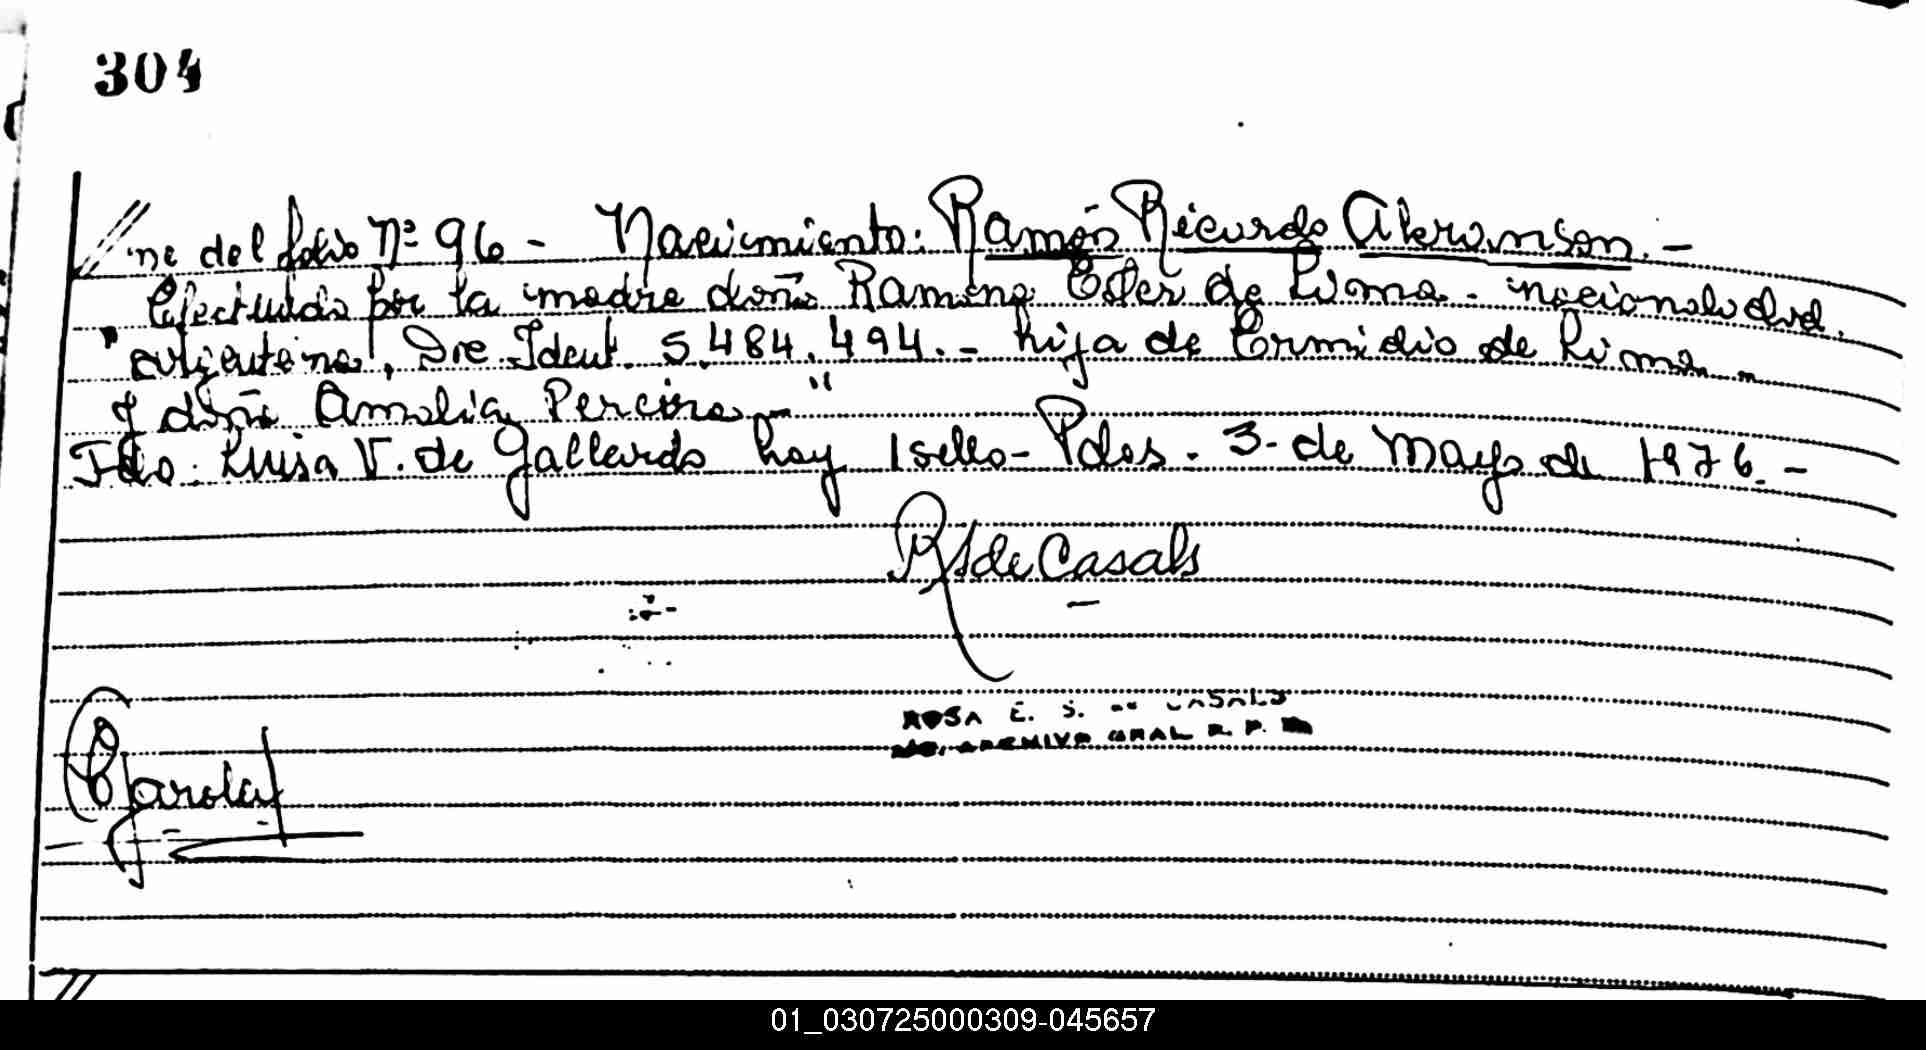 304
//ne del folio Nº 96 - Nacimiento: Ramón Ricardo Akranson. -
"Efectuado por la madre doña Ramona Ester de Lima - nacionalidad
argentina, Doc. Ident. 5.484.494. - hija de Ermidio de Lima -
y doña Amalia Pereira - "
Fdo: Luisa V. de Gallardo hay 1 sello - Pdas. 3 - de Mayo de 1976. -
RS de Casals
ROSA E. S. de CASALS
ARCHIVO GRAL R. P.
01_030725000309-045657